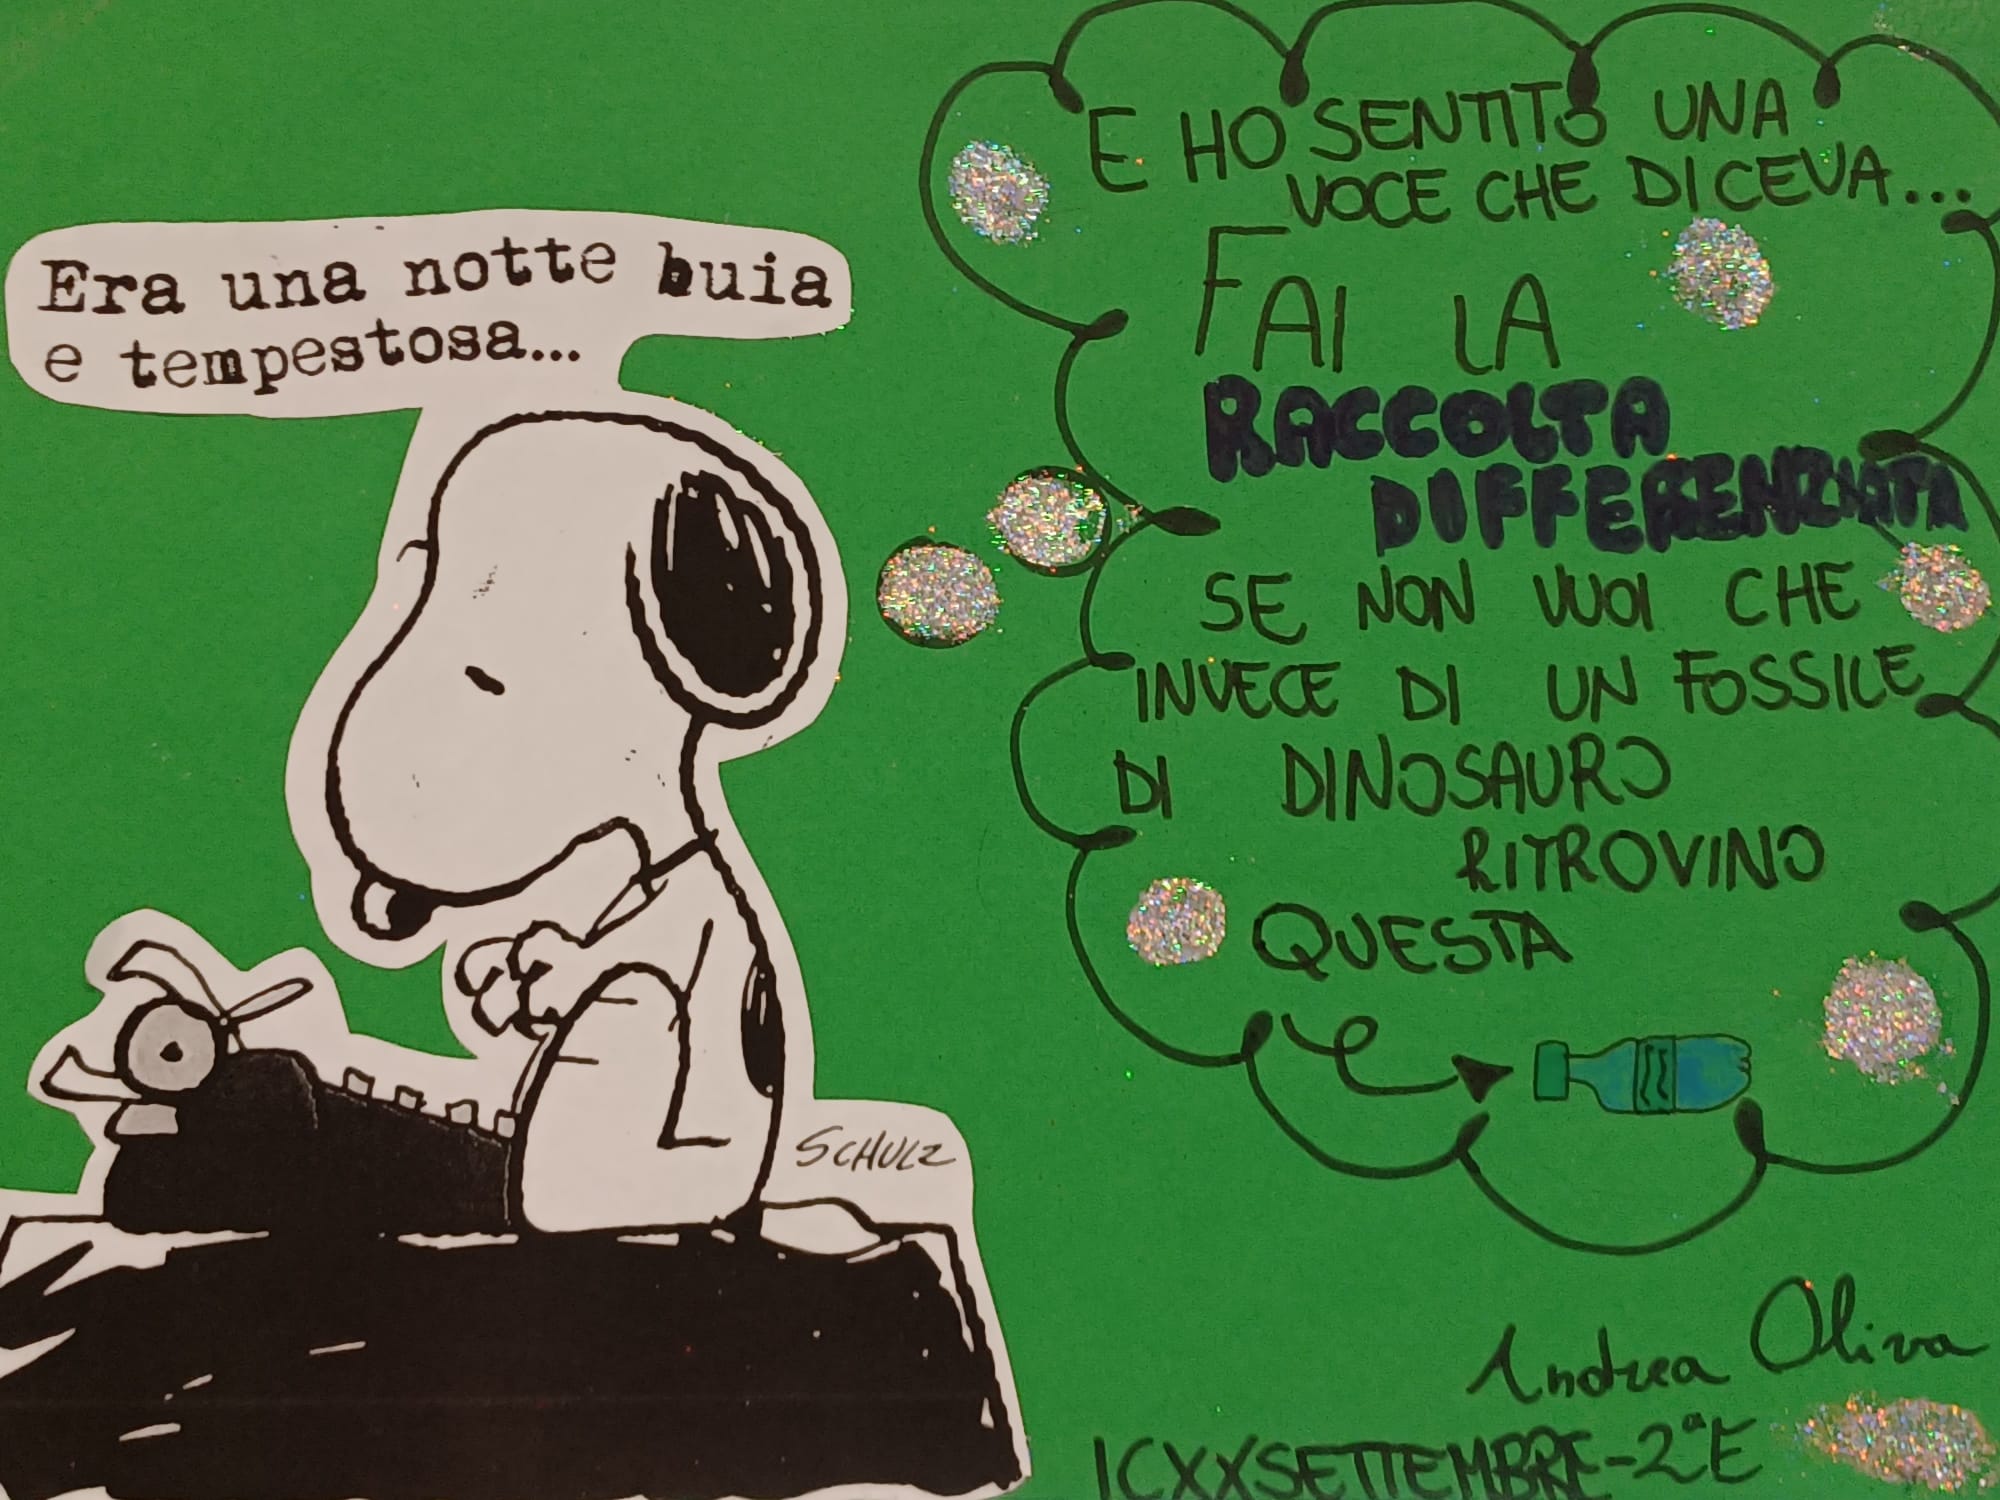 Era una notte buia
e tempestosa...
SCHULZ
E HO SENTITO UNA
VOCE CHE DICEVA...
FAI LA
RACCOLTA
DIFFERENZIATA
SE NON VUOI CHE
INVECE DI UN FOSSILE
DI DINOSAURO
RITROVINO
QUESTA
Andrea Oliva
ICXXSETTEMBRE-2ªE